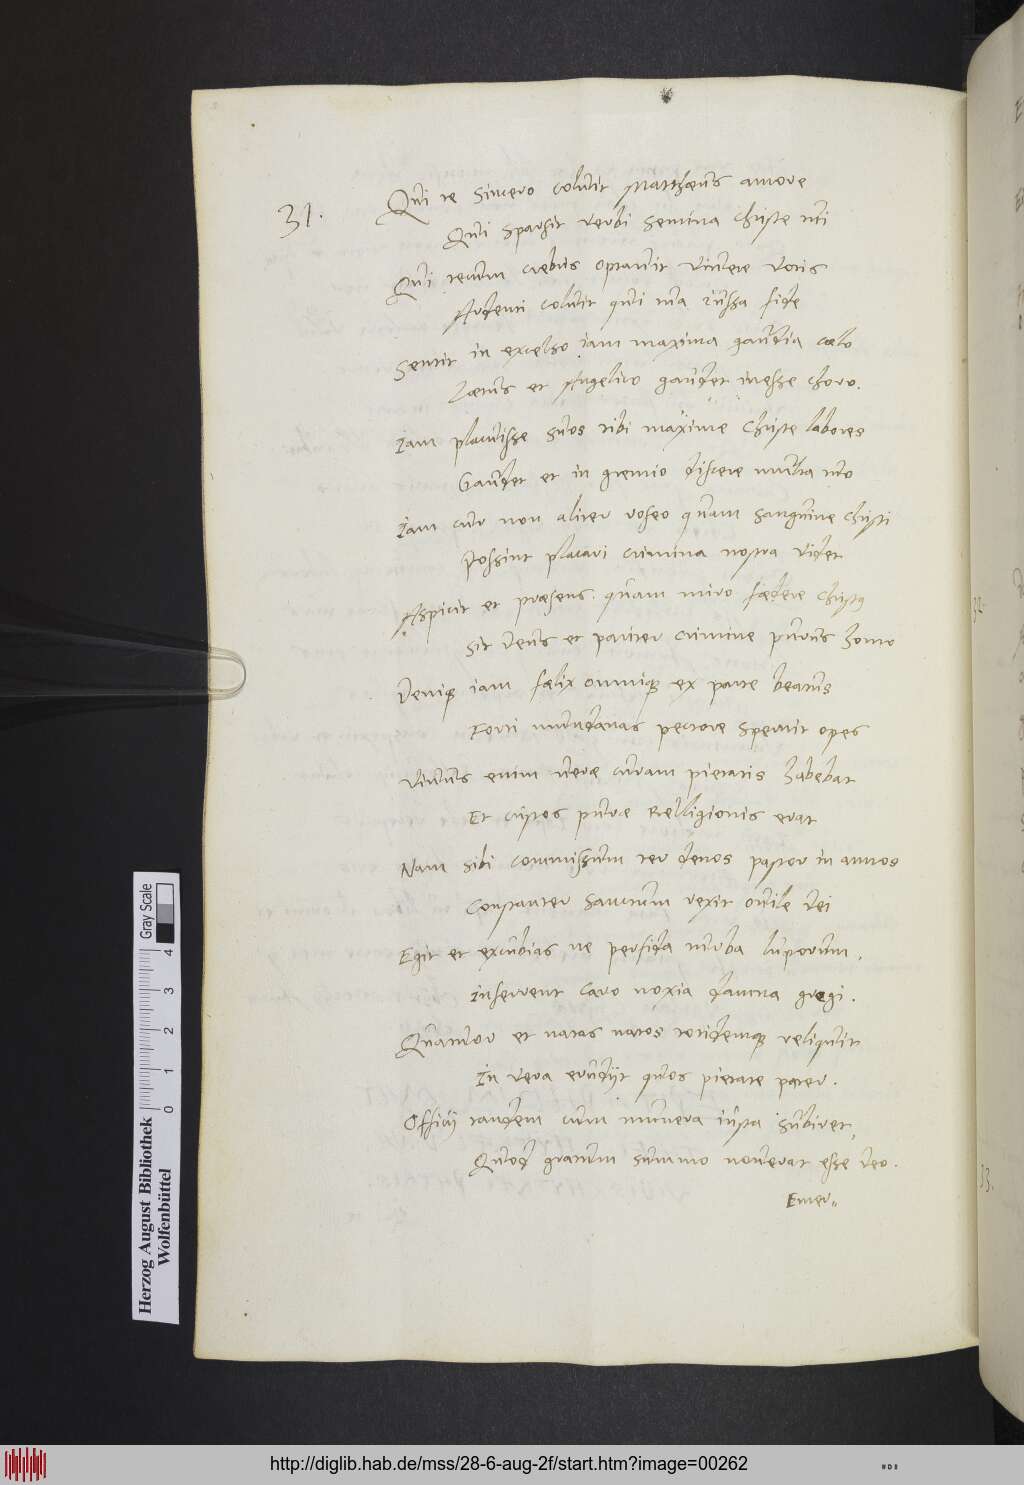 31.
Qui te sincero coluit Matthæus amore
Qui sparsit verbi semina Christe tui
Qui tecum crebris optauit viuere votis
Ardenti coluit qui tua iussa fide
Sentit in excelso iam maxima gaudia cælo
Lætus et Angelico gaudet inesse choro.
Iam placuisse suos tibi maxime Christe labores
Gaudet et in gremio discere multa tuo
Iam cur non aliter roseo quam sanguine Christi
Possint placari crimina nostra videt
Aspicit et præsens quam miro fœdere Christus
Sit Deus et pariter crimine purus homo
Deniq; iam fælix omniq; ex parte beatus
Forti mundanas pectore spernit opes
Viuus enim veræ curam pietatis habebat
Et custos puræ Relligionis erat
Nam sibi commissum ter denos pastor in annos
Constanter sanctum rexit ouile Dei
Egit et excubias, ne perfida turba luporum,
Inferrent caro noxia damna gregi.
Quatuor et natas natos totidemq; reliquit
In vera erudijt quos pietate pater.
Officij tandem cum munera iusta subiret,
Quod gratum summo nouerat esse Deo.
Emer=
32.
33.
Herzog August Bibliothek
Wolfenbüttel
Gray Scale
0 1 2 3 4
http://diglib.hab.de/mss/28-6-aug-2f/start.htm?image=00262